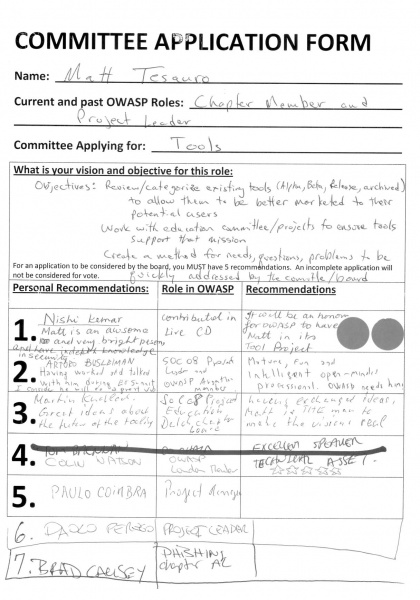 COMMITTEE APPLICATION FORM
Name: Matt Tesauro
Current and past OWASP Roles: Chapter Member and
Project Leader
Committee Applying for: Tools
What is your vision and objective for this role:
Objectives: Review/categorize existing tools (Alpha, Beta, Release, archived)
to allow them to be better marketed to their
potential users
Work with education committee/projects to ensure tools
support that mission
Create a method for needs, questions, problems to be
quickly addressed by the committee/board
For an application to be considered by the board, you MUST have 5 recommendations. An incomplete application will
not be considered for vote.
Personal Recommendations: Role in OWASP Recommendations
1. Nishi Kumar contributed in It would be an honor
Matt is an awesome Live CD for OWASP to have
and very bright person Matt in its
and have indepth knowledge Tool Project
in security
2. ARTURO BUSLEIMAN SOC 08 Project Mature, fun and
Having worked and talked Leader and intelligent open-minded
with him during EU Summit OWASP professional. OWASP needs him
3. Martin Knobloch SoC08 Project
Great ideas about Education Matt is THE man to
the future of the Dutch chapter make the visions real
4.
COLIN WATSON OWASP EXCELLENT SPEAKER
London Leader TECHNICAL ASSET.
5. PAULO COIMBRA Project Manager
6. PAOLO PEREGO PROJECT LEADER
7. BRAD CAUSEY PHISHING
chapter AL